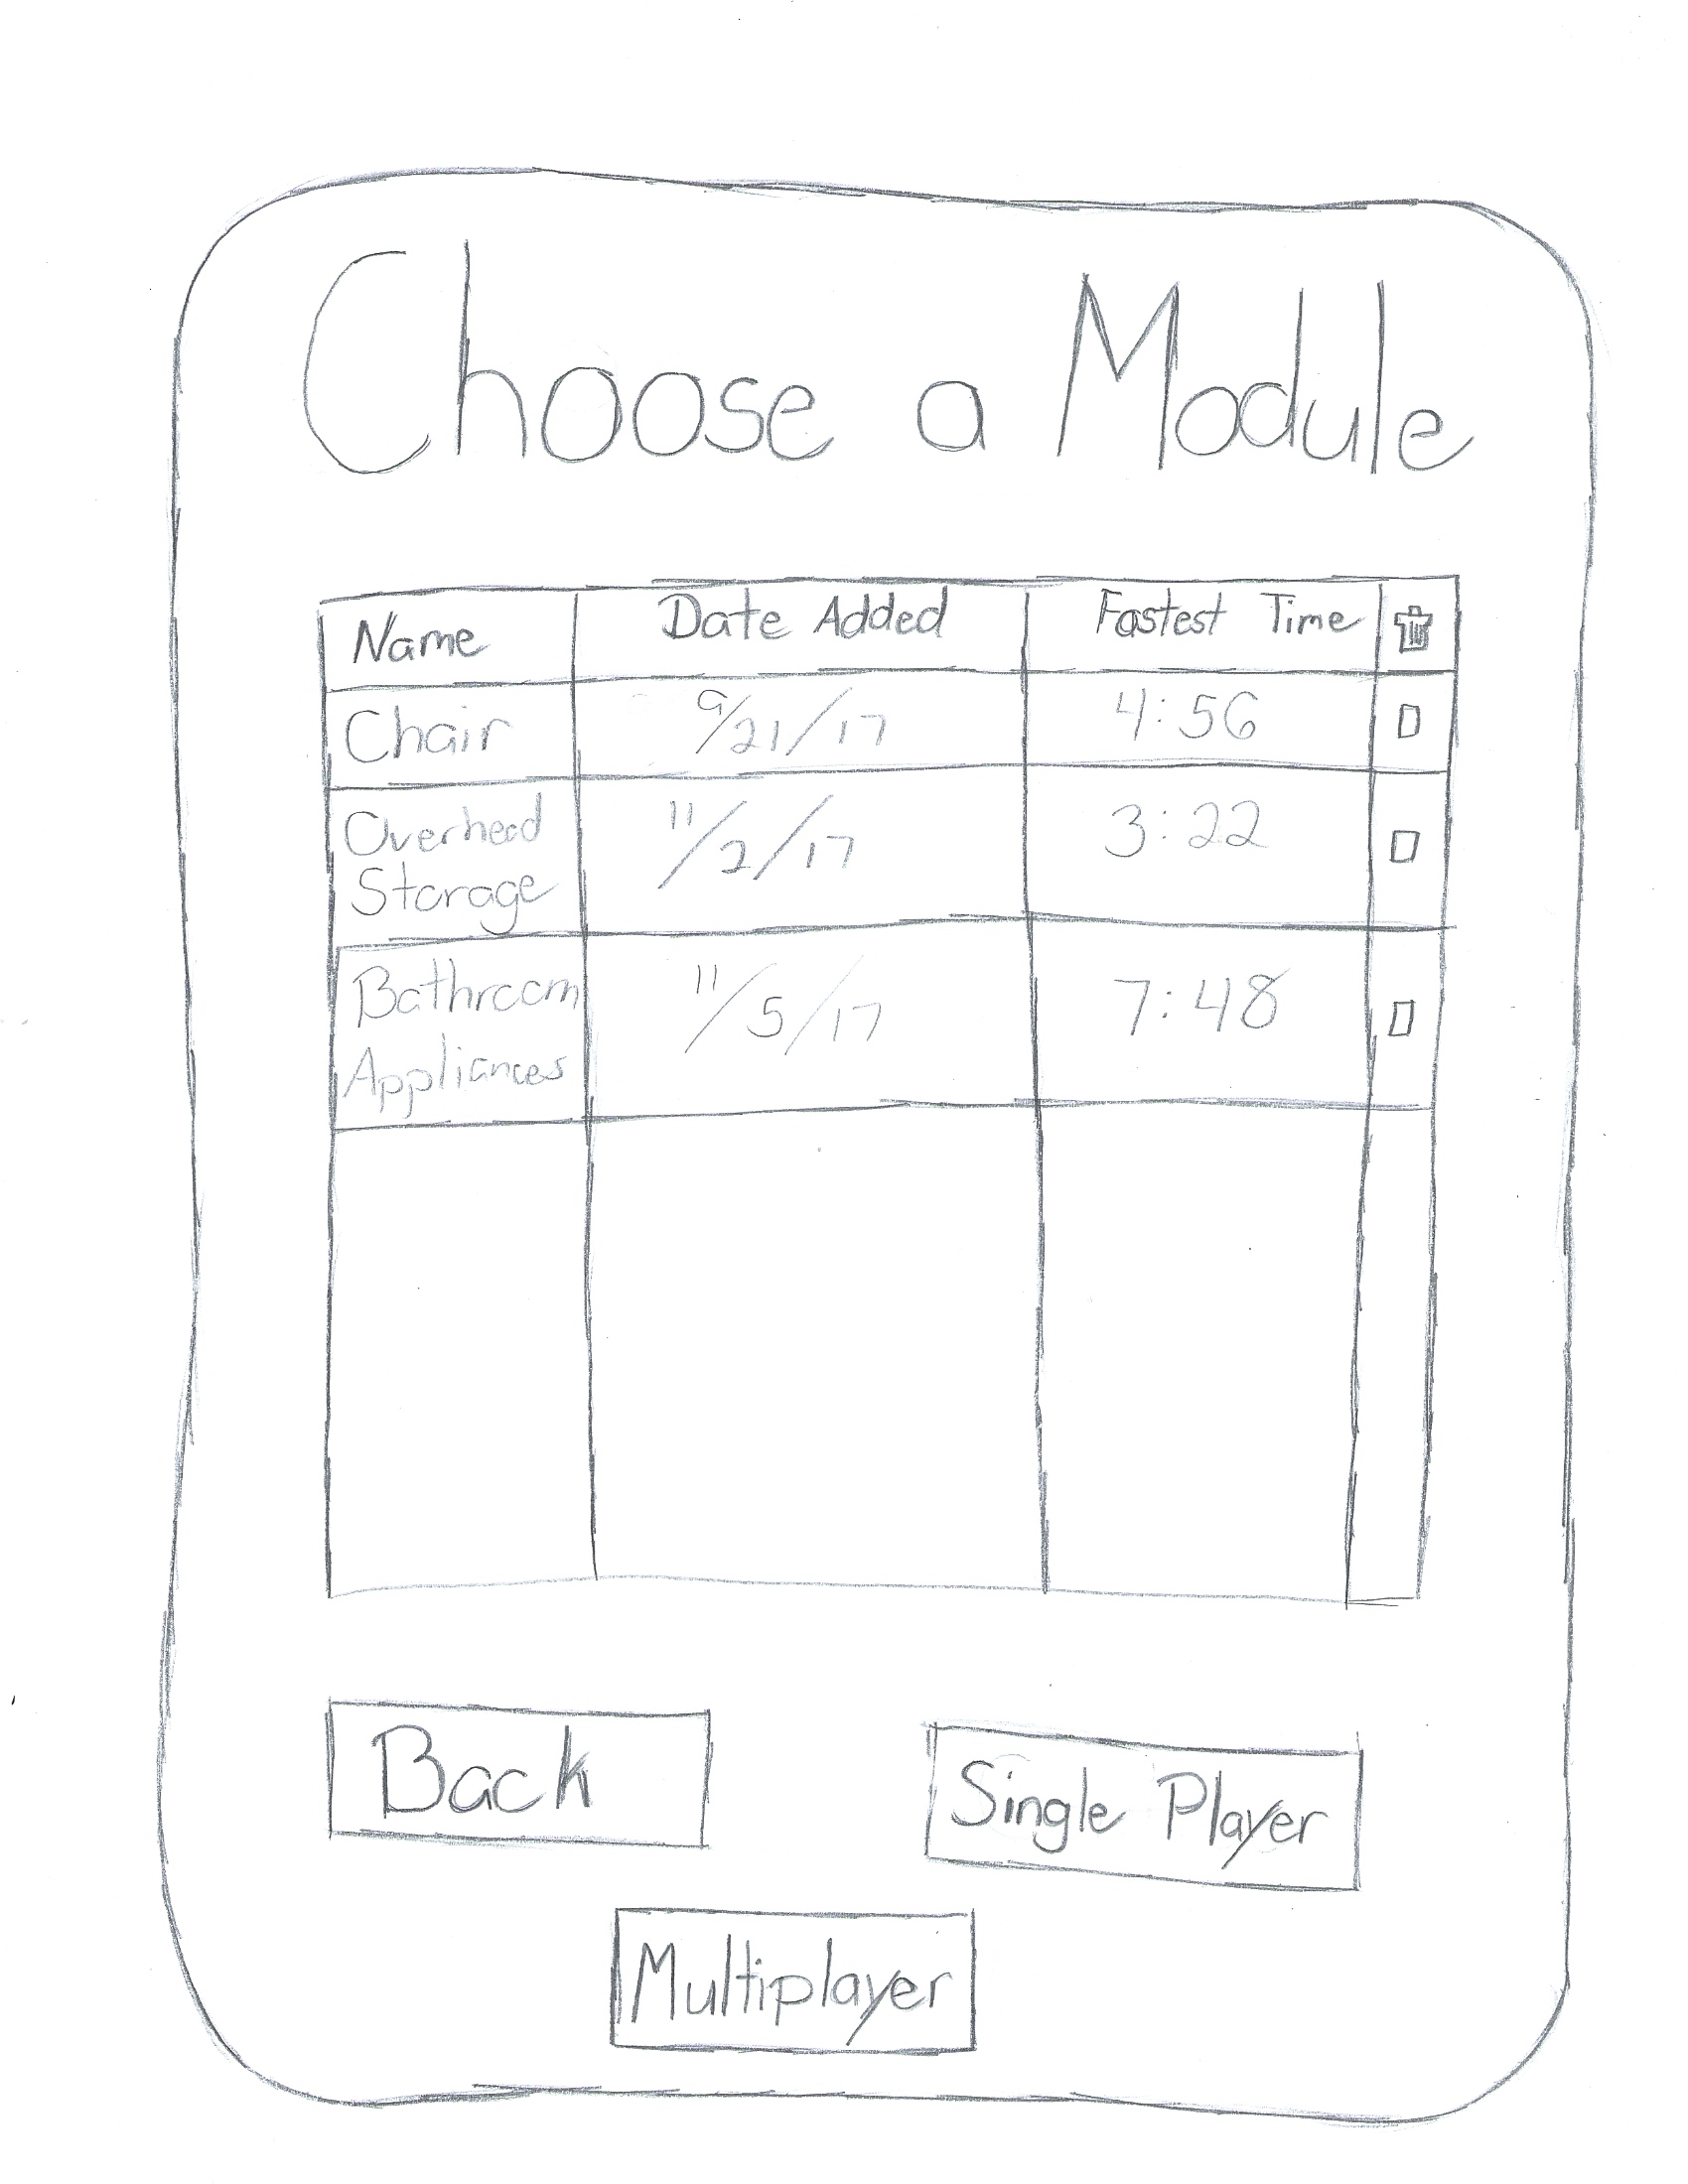 Choose a Module
Name Date Added Fastest Time
Chair 9/21/17 4:56
Overhead
Storage 11/2/17 3:22
Bathroom
Appliances 11/5/17 7:48
Back Single Player
Multiplayer